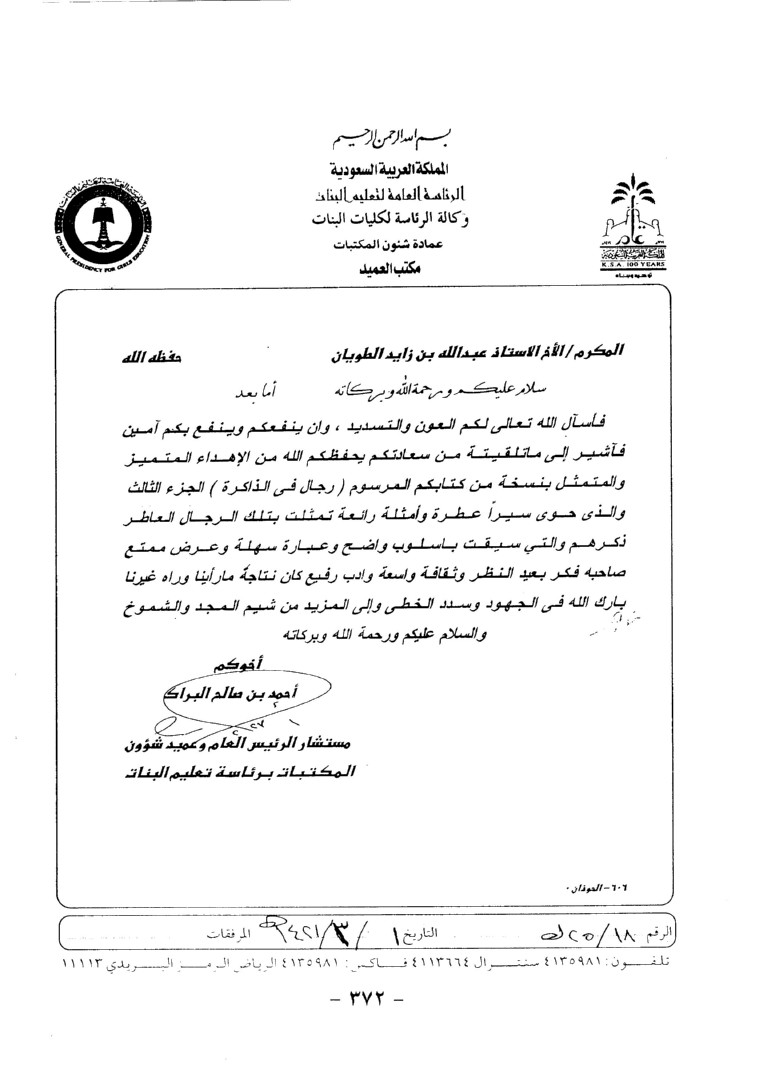 بسم الله الرحمن الرحيم
المملكة العربية السعودية
الرئاسة العامة لتعليم البنات
وكالة الرئاسة لكليات البنات
عمادة شئون المكتبات
مكتب العميد
GENERAL PRESIDENCY FOR GIRLS EDUCATION
K.S.A. 100 YEARS
المكرم / الأخ الاستاذ عبدالله بن زايد الطويان حفظه الله
سلام عليكم ورحمة الله وبركاته أما بعد
فأسآل الله تعالى لكم العون والتسديد ، وان ينفعكم وينفع بكم آمين
فآشير إلى ماتلقيتة من سعادتكم يحفظكم الله من الإهداء المتميز
والمتمثل بنسخة من كتابكم المرسوم ( رجال فى الذاكرة ) الجزء الثالث
والذى حوى سيراً عطرة وأمثلة رائعة تمثلت بتلك الرجال العاطر
ذكرهم والتي سيقت باسلوب واضح وعبارة سهلة وعرض ممتع
صاحبه فكر بعيد النظر وثقافة واسعة وادب رفيع كان نتاجة مارأينا وراه غيرنا
بارك الله فى الجهود وسدد الخطى وإلى المزيد من شيم المجد والشموخ
والسلام عليكم ورحمة الله وبركاته
أخوكم
أحمد بن صالح البراك
مستشار الرئيس العام وعميد شؤون
المكتبات برئاسة تعليم البنات
٦٠٦ - الحوذان ٠
الرقم ١٨/٢٥ التاريخ ١/٣/١٤٢١ المرفقات
تلفــون : ٤١٣٥٩٨١ سنتــرال ٤١١٣٦٦٤ فــاكس : ٤١٣٥٩٨١ الرياض الرمــز البــريدي ١١١١٣
– ٣٧٢ –